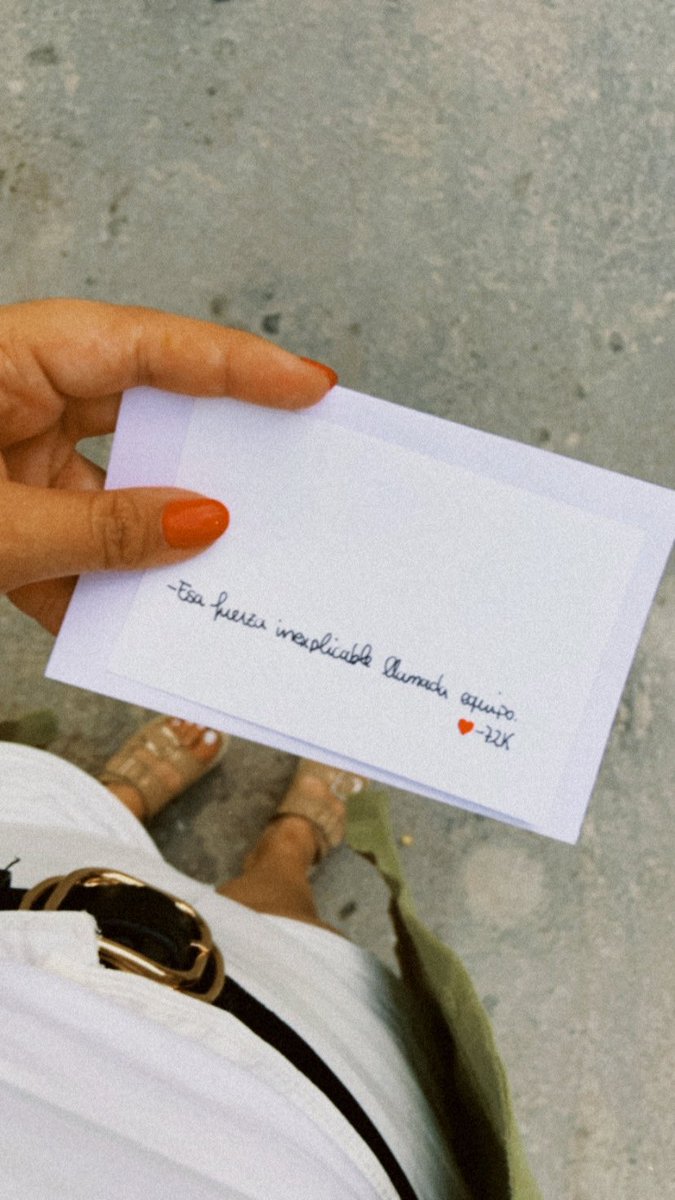 -Esa fuerza inexplicable llamada equipo.
❤-72K